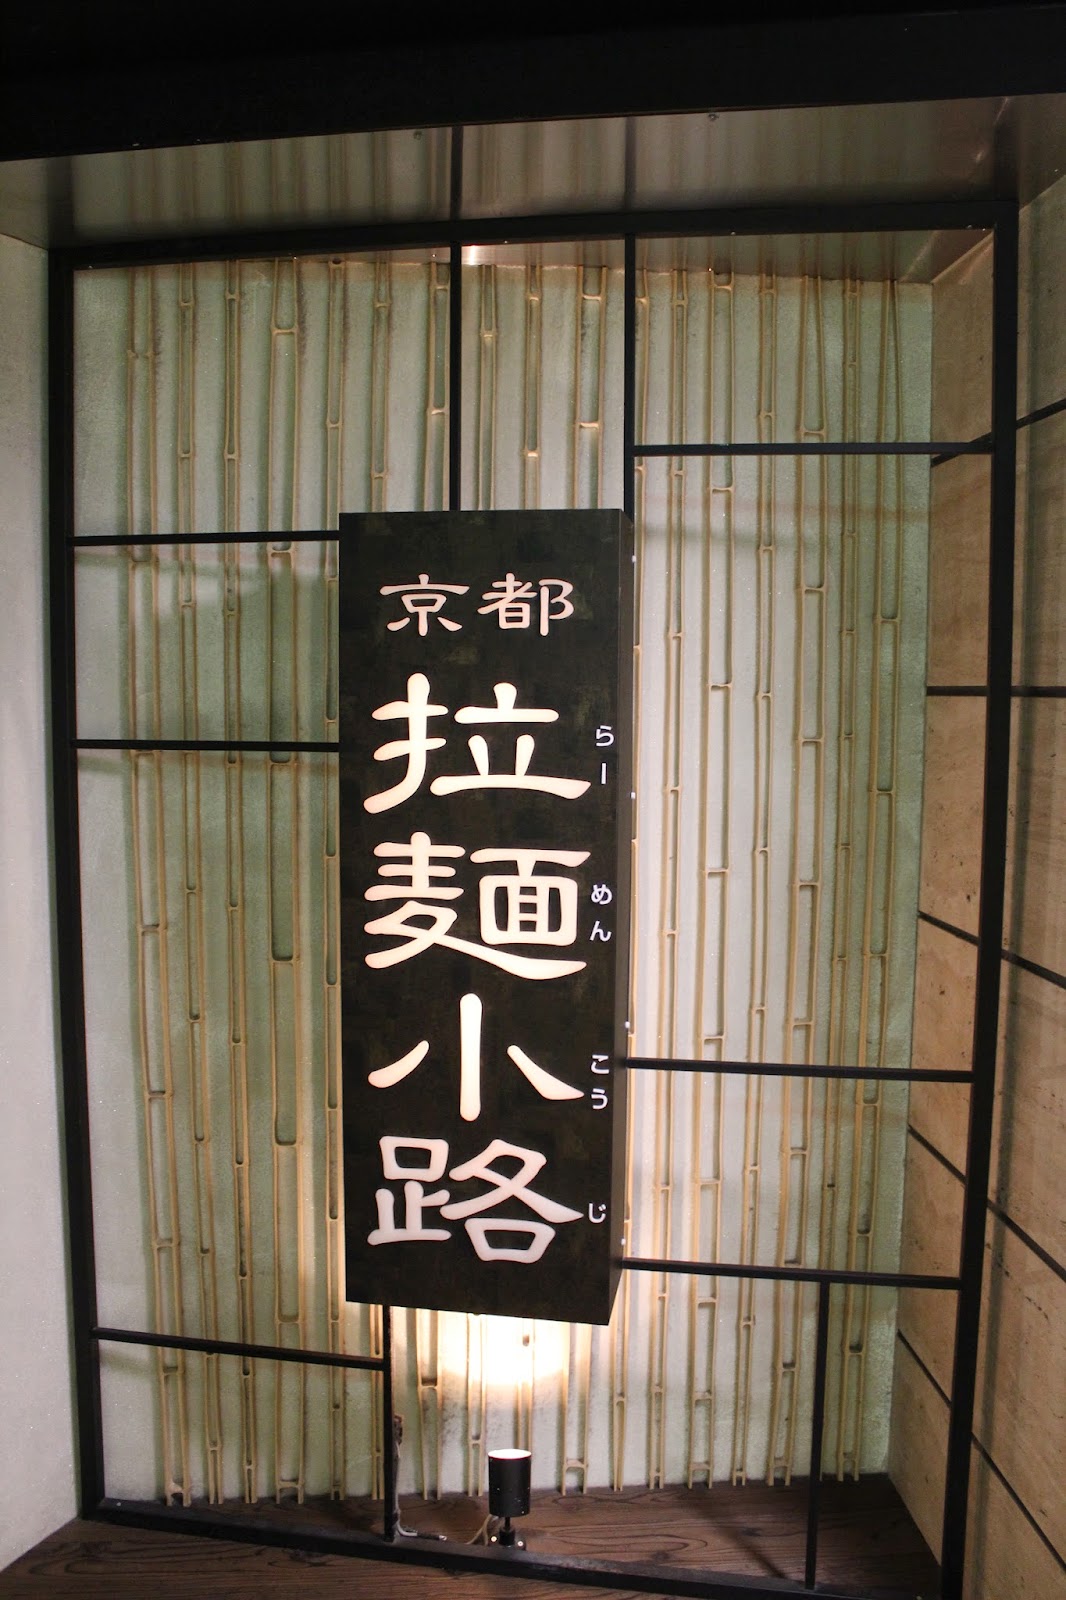 京都
拉麺小路
らーめんこうじ